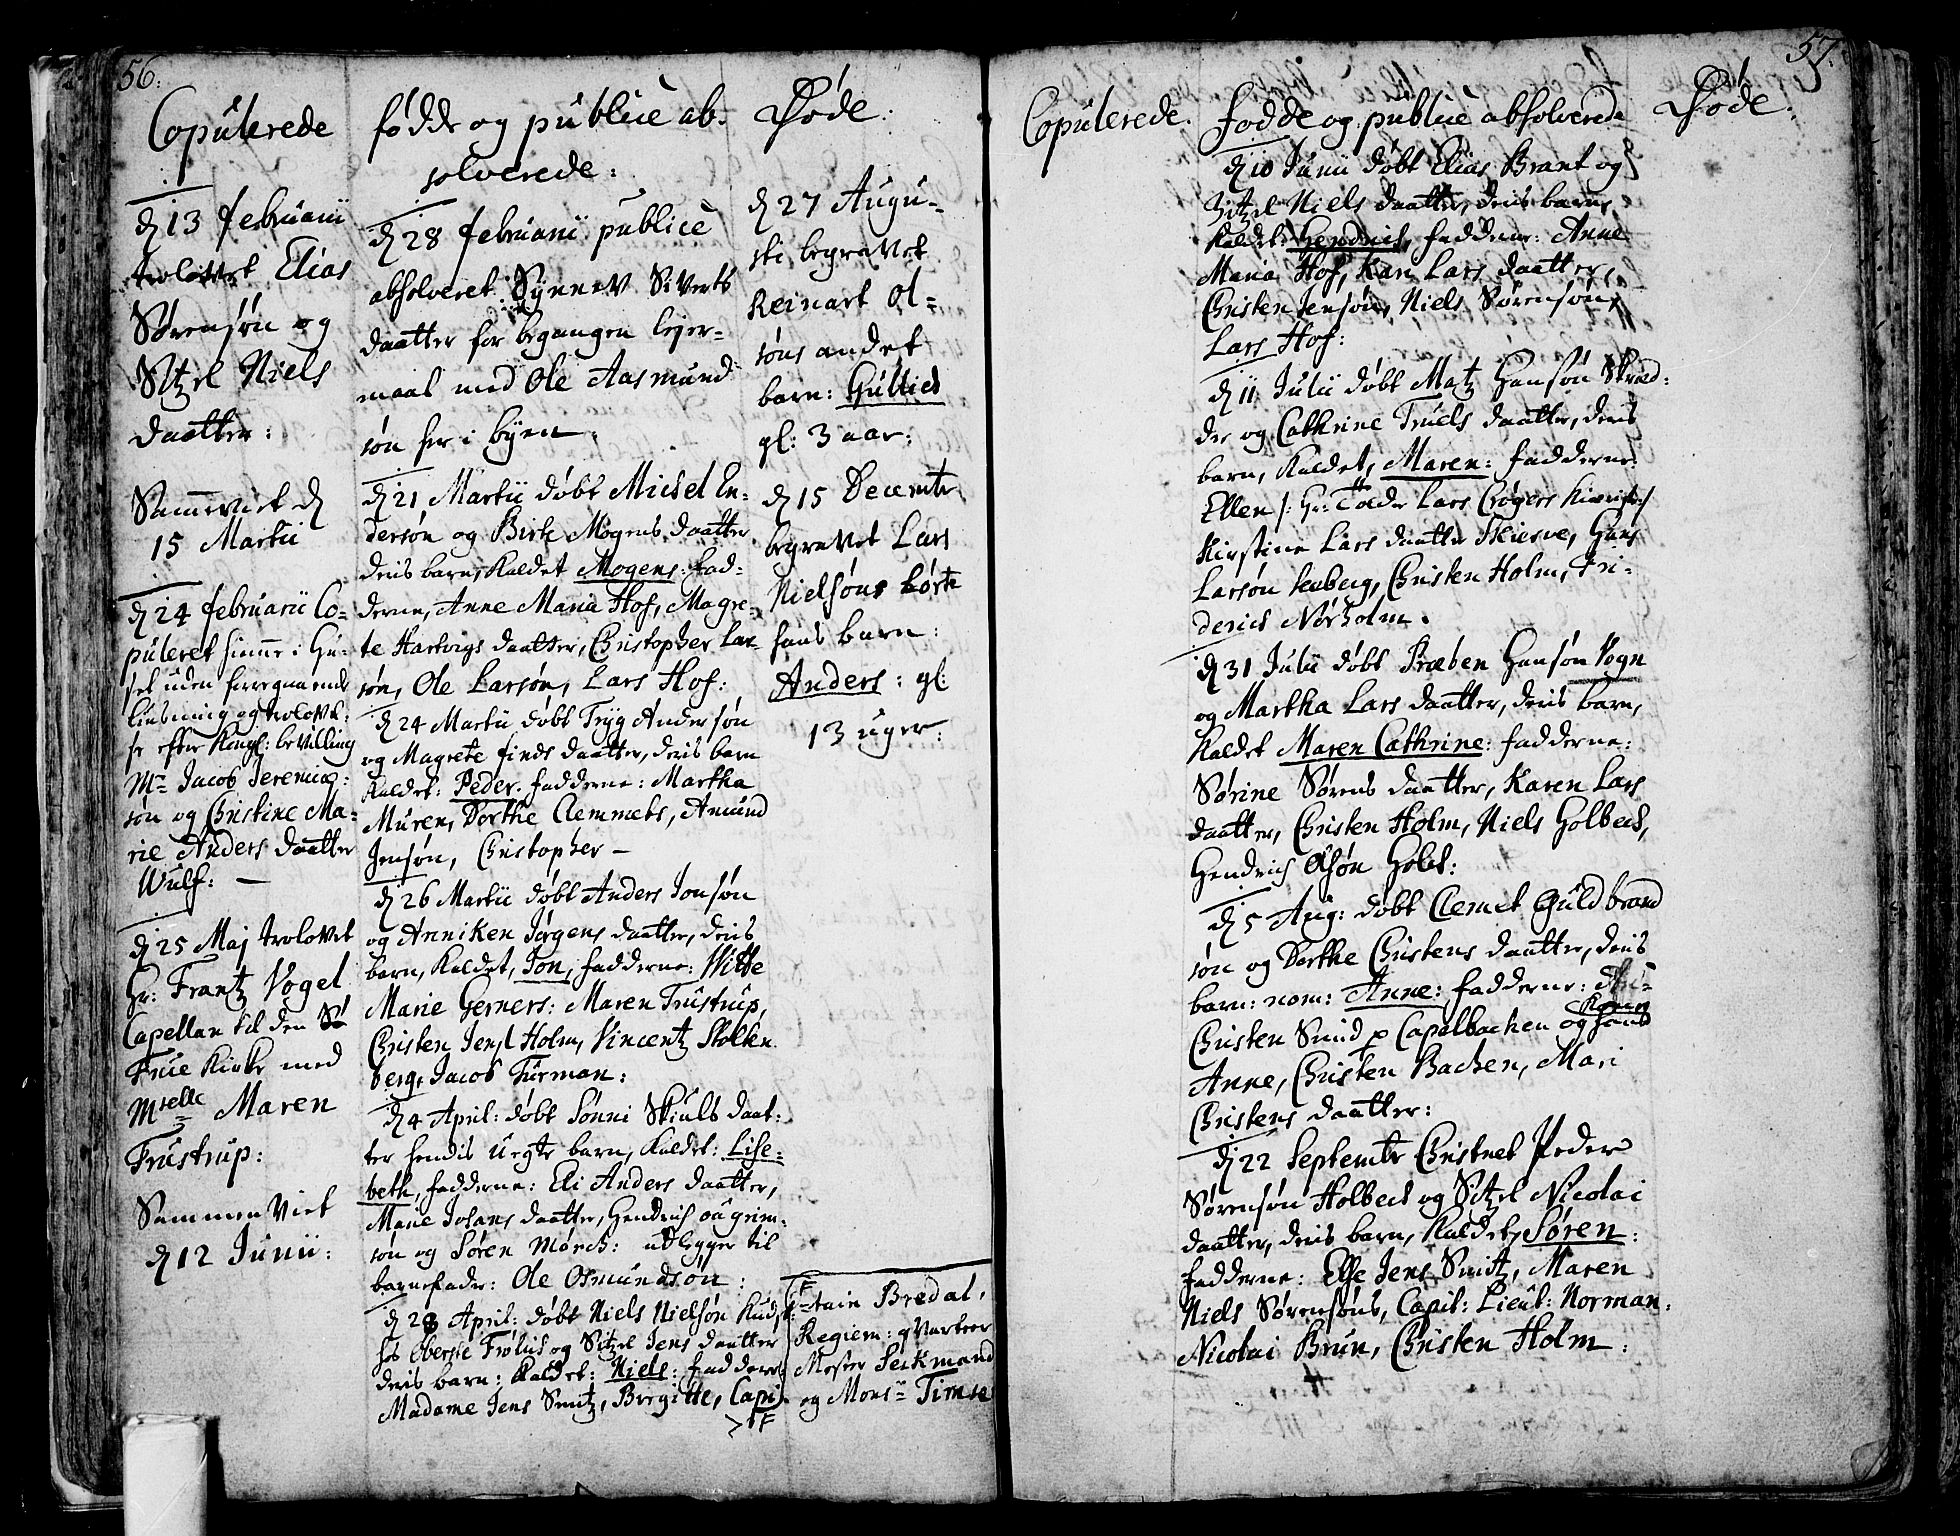 56.
Copulerede
d 13 februarii
trolovet Elias
Sørensøn og
Sitzel Niels
daatter:
Sammeviet d
15 Martii
d 24 februarii Co-
puleret hieme i Hu-
set uden foregaaende
liusning og trolovel-
se efter Kongl: bevilling
Mr Jacob Jeremiæ-
søn og Christine Ma-
rie Anders daatter
Wulf: —
d 25 Maj trolovet
Hr: Frantz Vogel
Capellan til den
Frue Kirke med
Mselle Maren
Trustrup:
Sammenviet
d 12 Junii:
fødde og publicè ab-
solverede:
d 28 februarii publicè
absolveret Synnev Siverts
daatter for begangen lejer-
maal med Ole Aasmund-
søn her i byen.
d 21 Martii døbt Michel En-
dersøn og Birte Mogens daatter
deris barn, Kaldet Mogens: fad-
derne, Anne Maria Hof, Magre-
te Hartvigs daatter, Christopher Lar-
søn, Ole Larsøn, Lars Hof:
d 24 Martii døbt Tryg Andersøn
og Magrete finds daatter, deris barn
Kaldet: Peder. fadderne: Martha
Muren, Dorthe Clemmets, Amund
Jensøn, Christopher —
d 26 Martii døbt Anders Jonsøn
og Anniken Jørgens daatter, deris
barn, Kaldet, Jon, fadderne: Witte
Marie Gerners: Maren Trustrup,
Christen Jens Holm, Vincentz Stolten
berg, Jacob Furman:
d 4 April: døbt Sønni Skiuls daat-
ter hendis uegte barn, Kaldet: Lise-
beth, fadderne: Eli Anders daatter,
Marie Johans daatter, Hendrich
søn og Søren Mørch: udlegger til
barnefader: Ole Osmundsøn:
d 28 April: døbt Niels Nielsøn Kudsk
hos Oberste Frølich og Sitzel Jens daatter
deris barn: Kaldet: Niels: fadderne
Madame Jens Smitz, Bregitte, Capi-
Døde:
d 27 Augu-
sti begravet
Reinart Ol-
søns andet
barn: Gullich
gl: 3 aar:
d 15 Decembr
begravet Lars
Nielsøns børte
hans barn:
Anders: gl:
13 uger:
tain Bredal,
Regiem: qvarteer
Mester Serkmand
og Monsr Timse
57.
Copulerede.
Fødde og publicè absolverede
d 10 Junii døbt Elias Brant og
Sitzel Niels daatter, deris barn,
Kaldet: Hendrich, fadderne: Anne
Maria Hof, Kari Lars daatter,
Christen Jensøn, Niels Sørensøn,
Lars Hof:
d 11 Julii døbt Matz Hansøn Skræd-
der og Cathrine Truels daatter, deris
barn, Kaldet, Maren: fadderne:
Ellen Lars Crøgers
Kirstine Lars daatter Skierve, Hans
Larsøn Leeberg, Christen Holm, Fri-
derich Nørholm.
d 31 Julii døbt Præben Hansøn Vogn
og Martha Lars daatter, deris barn,
Kaldet Maren Cathrine: fadderne:
Sørine Sørens daatter, Karen Lars
daatter, Christen Holm, Niels Holbech,
Hendrich Olsøn Holt:
d 5 Aug: døbt Clemet Guldbrand
søn og Dorthe Christens daatter, deris
barn: nom: Anne: fadderne:
Christen Smid p Capelbacken og hans
Kone
Anne, Christen Bachen, Mari
Christens daatter:
d 22 Septembr Christnet Peder
Sørensøn Holbech og Sitzel Nicolai
daatter, deris barn, Kaldet, Søren:
fadderne: Else Jens Smitz, Maren
Niels Sørensøns, Capit: Lieut: Norman,
Nicolai Brun, Christen Holm:
Døde: